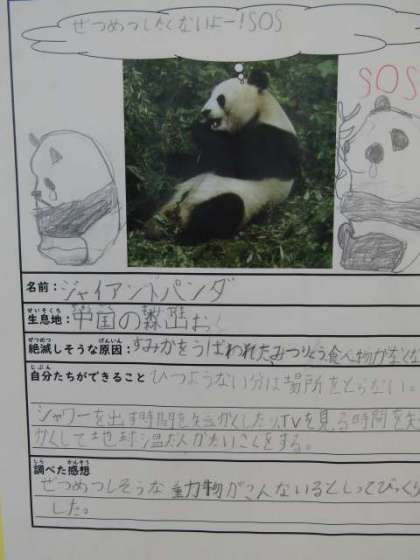 ぜつめつしたくないよー!SOS
SOS
名前:ジャイアントパンダ
生息地:中国の森山おく
絶滅しそうな原因:すみかをうばわれた、みつりょう食べ物がなくな
自分たちができること ひつような分は場所をとらない。
シャワーを出す時間を短かくしたり、TVを見る時間を
かくして地球温だんかたいさくをする。
調べた感想
ぜつめつしそうな動物がこんないるとしってびっくり
した。